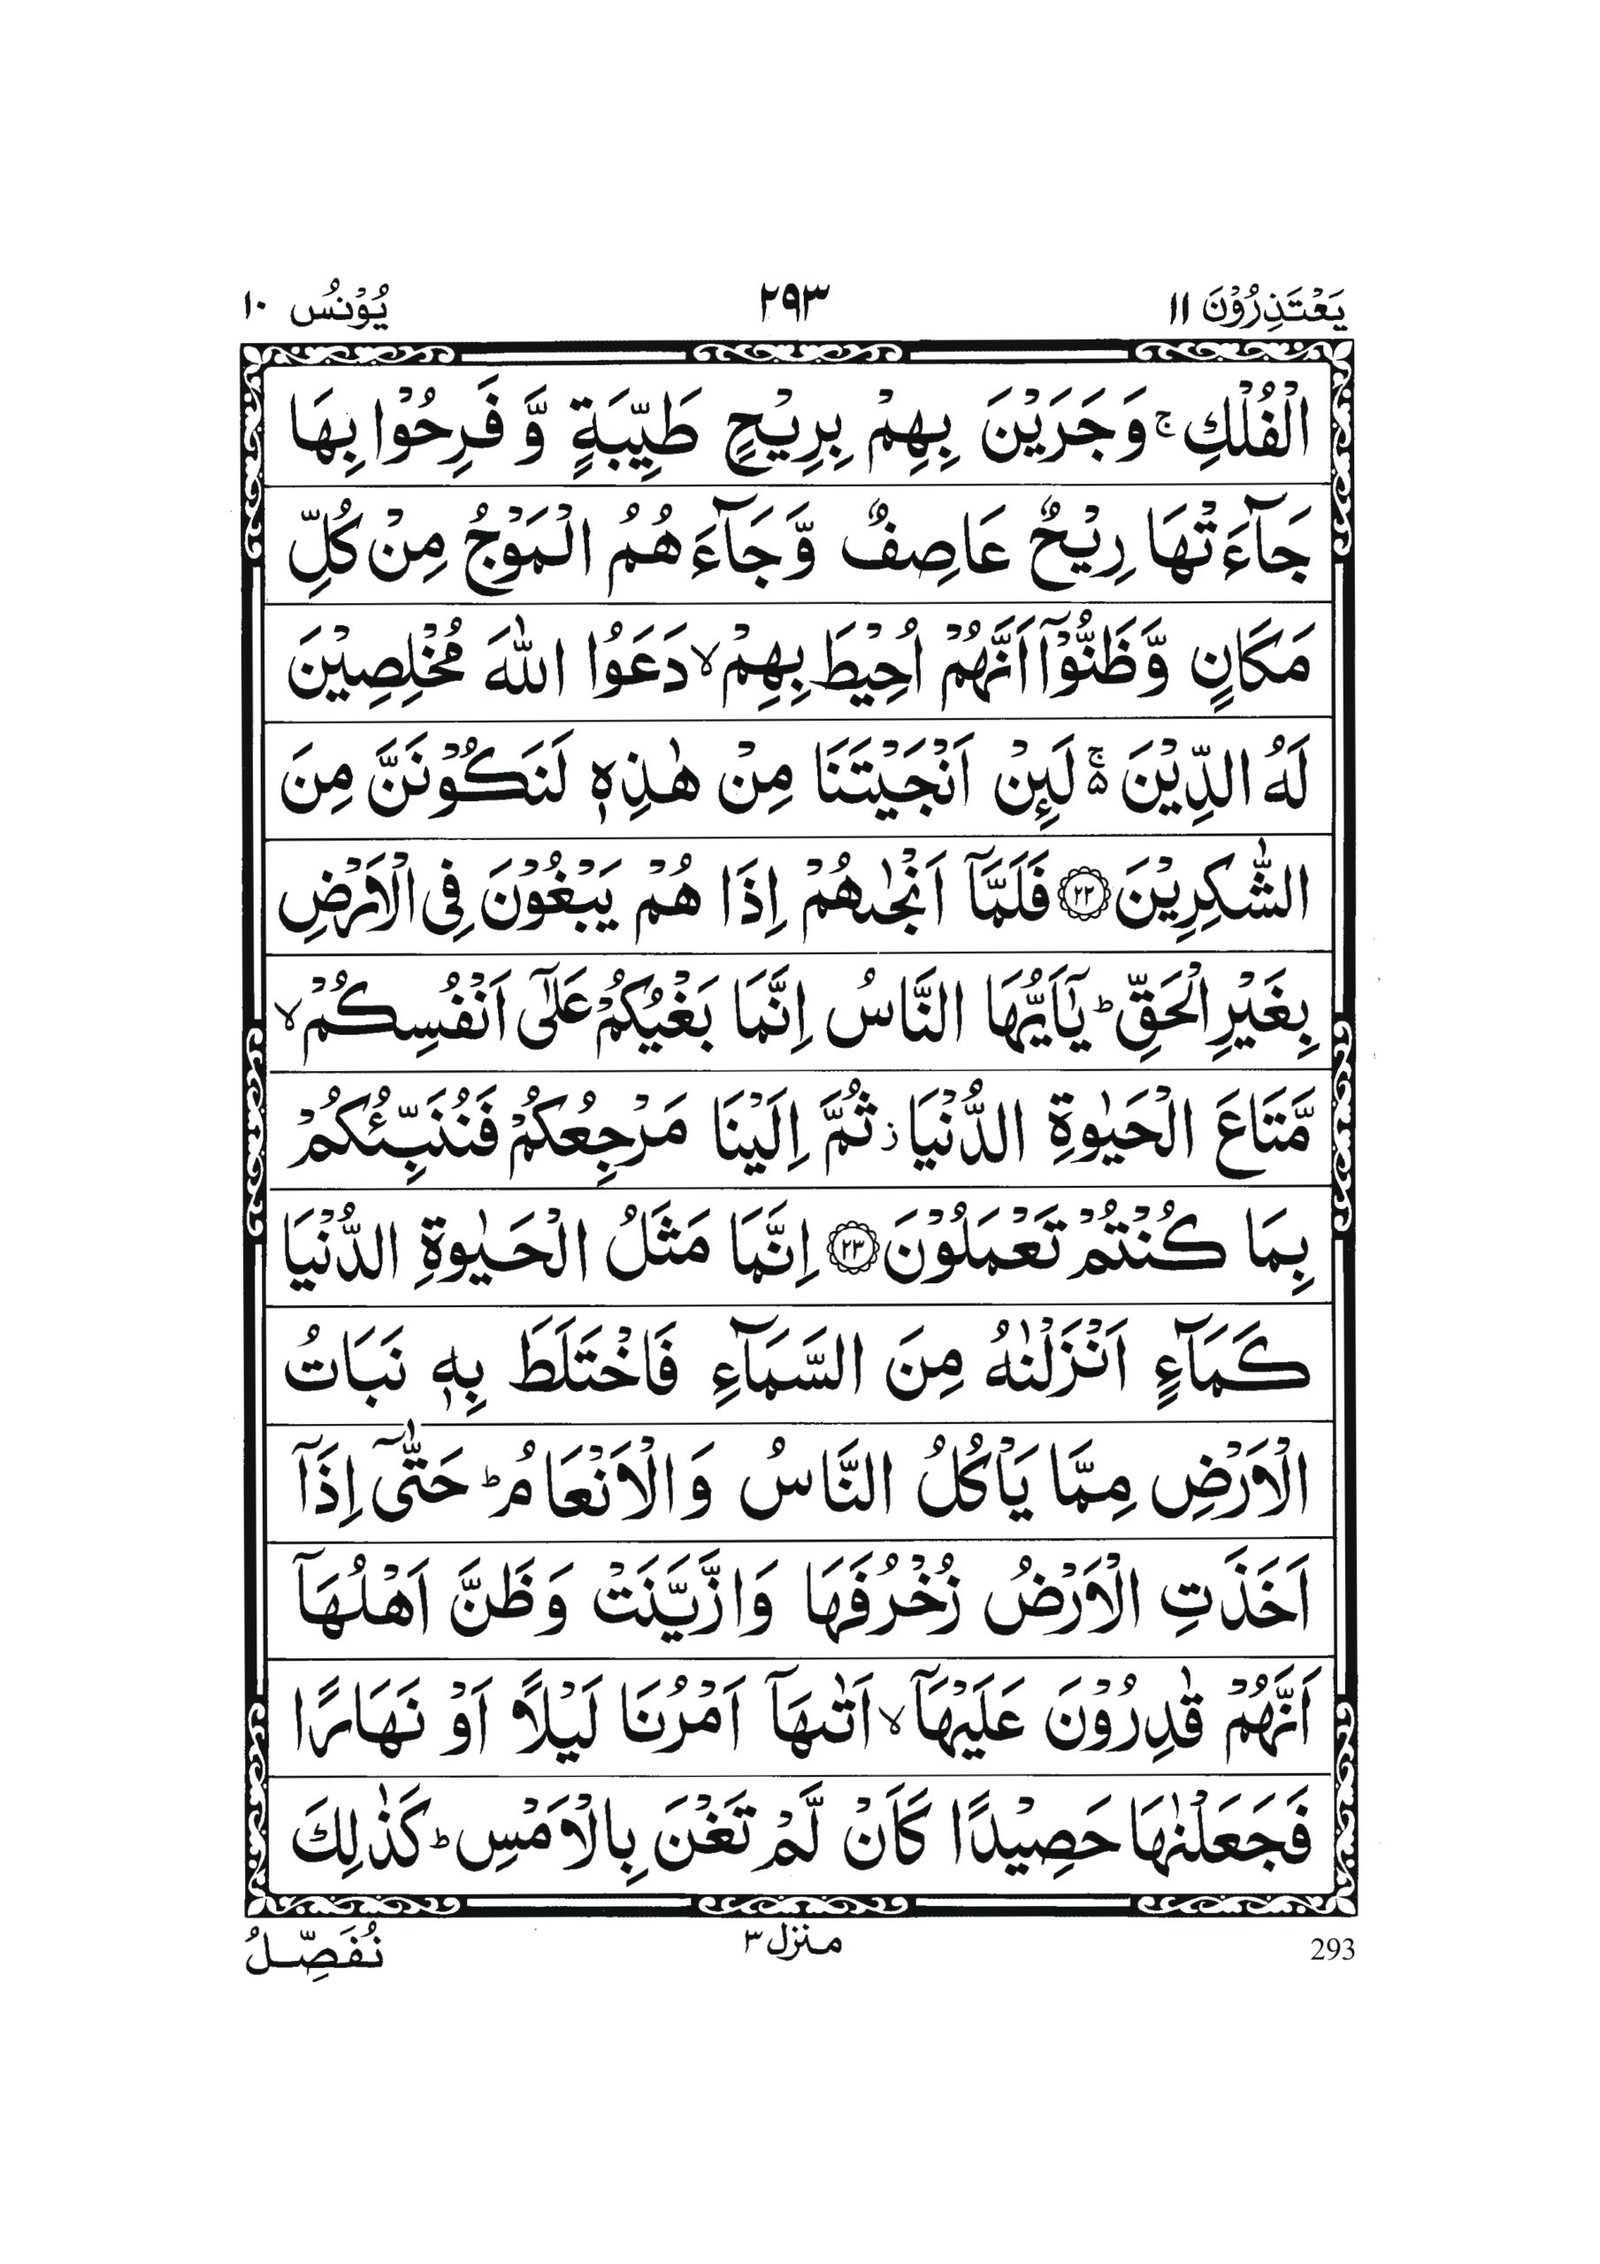 يَعْتَذِرُوْنَ ١١ ٢٩٣ يُوْنُس ١٠
الْفُلْكِ ۚ وَجَرَيْنَ بِهِمْ بِرِيْحٍ طَيِّبَةٍ وَّ فَرِحُوْا بِهَا
جَآءَتْهَا رِيْحٌ عَاصِفٌ وَّجَآءَهُمُ الْمَوْجُ مِنْ كُلِّ
مَكَانٍ وَّظَنُّوْۤا اَنَّهُمْ اُحِيْطَ بِهِمْ ۙ دَعَوُا اللّٰهَ مُخْلِصِيْنَ
لَهُ الدِّيْنَ ۚ۬ لَىِٕنْ اَنْجَيْتَنَا مِنْ هٰذِهٖ لَنَكُوْنَنَّ مِنَ
الشّٰكِرِيْنَ ﴿٢٢﴾ فَلَمَّاۤ اَنْجٰىهُمْ اِذَا هُمْ يَبْغُوْنَ فِى الْاَرْضِ
بِغَيْرِ الْحَقِّ ؕ يٰۤاَيُّهَا النَّاسُ اِنَّمَا بَغْيُكُمْ عَلٰۤى اَنْفُسِكُمْ ۙ
مَّتَاعَ الْحَيٰوةِ الدُّنْيَا ؗ ثُمَّ اِلَيْنَا مَرْجِعُكُمْ فَنُنَبِّئُكُمْ
بِمَا كُنْتُمْ تَعْمَلُوْنَ ﴿٢٣﴾ اِنَّمَا مَثَلُ الْحَيٰوةِ الدُّنْيَا
كَمَآءٍ اَنْزَلْنٰهُ مِنَ السَّمَآءِ فَاخْتَلَطَ بِهٖ نَبَاتُ
الْاَرْضِ مِمَّا يَاْكُلُ النَّاسُ وَالْاَنْعَامُ ؕ حَتّٰۤى اِذَاۤ
اَخَذَتِ الْاَرْضُ زُخْرُفَهَا وَازَّيَّنَتْ وَظَنَّ اَهْلُهَاۤ
اَنَّهُمْ قٰدِرُوْنَ عَلَيْهَاۤ ۙ اَتٰىهَاۤ اَمْرُنَا لَيْلًا اَوْ نَهَارًا
فَجَعَلْنٰهَا حَصِيْدًا كَاَنْ لَّمْ تَغْنَ بِالْاَمْسِ ؕ كَذٰلِكَ
293 منزل ٣ نُفَصِّلُ